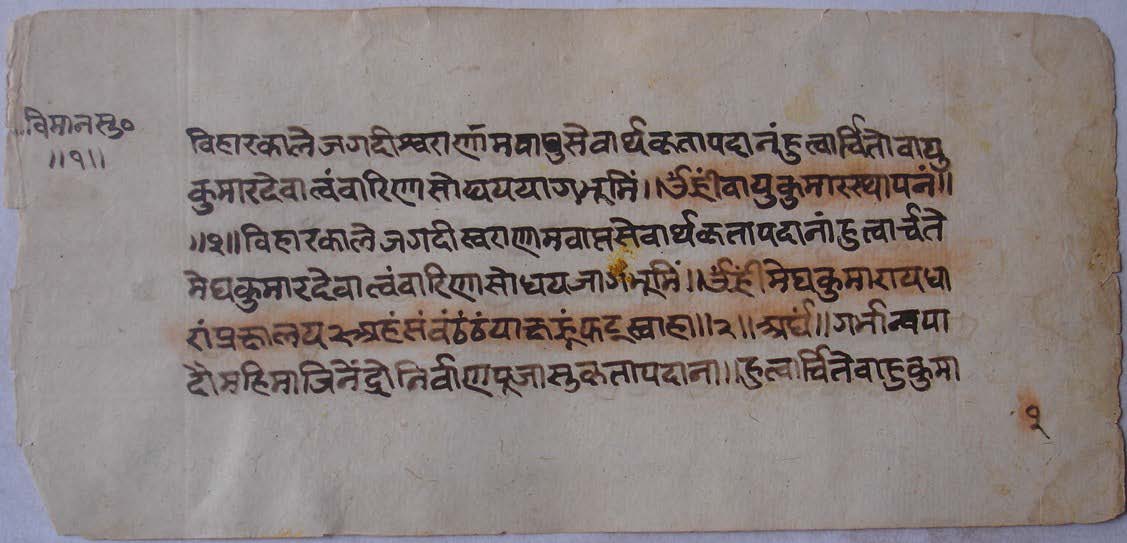 विमानसु०
॥१॥
विहारकाले जगदीश्वराणां मवाप्नुसेवार्थकतापदानं हुत्वार्चितो वायु
कुमारदेवात्वं वारिणासोध्यययागभूमिं॥ॐ ह्रीं वायुकुमारस्थापनं॥
॥१॥विहारकाले जगदीस्वराणामवाप्तसेवार्थकतापदानां हुत्वार्चते
मेघकुमारदेवात्वं वारिणासोधयजागभूमिं॥ॐ ह्रीं मेघकुमारायधा
रां प्रक्षालय २ अहं सं वं ठं ठं यः क्ष फट् स्वाहा॥२॥अर्घं॥गर्भान्वया
दौ महिमाजिनेंद्रो निर्वाणपूजासुकतापदाना॥हुत्वार्चितेवाहुकुमा
१